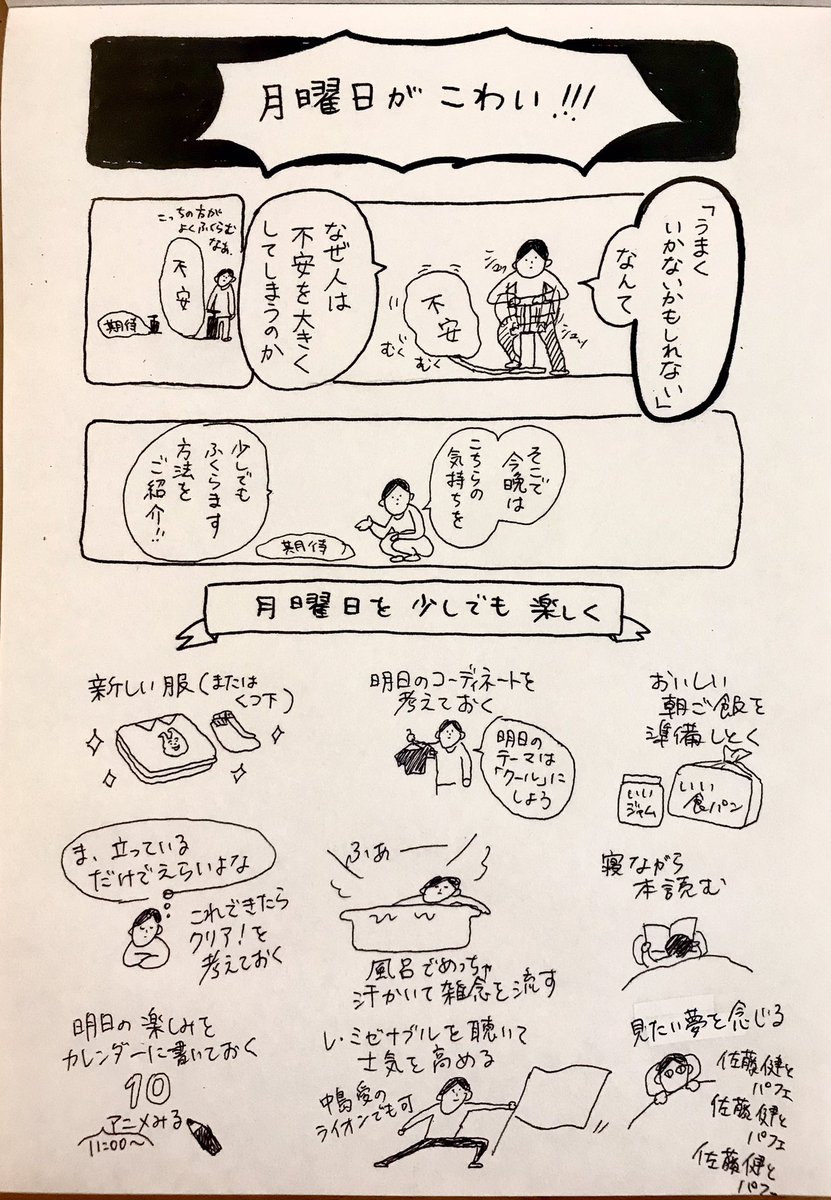 月曜日がこわい!!!
「うまく
いかないかもしれない」
なんて
ショリ
ショリ
不安
むく
むく
なぜ人は
不安を大きく
してしまうのか
こっちの方が
よくふくらむ
なぁ、
不安
期待
そこで
今晩は
こちらの
気持ちを
期待
少しでも
ふくらます
方法を
ご紹介!!
月曜日を少しでも楽しく
新しい服(または
くつ下)
明日のコーディネートを
考えておく
明日の
テーマは
「クール」に
しよう
おいしい
朝ご飯を
準備しとく
いい
ジャム
いい
食パン
ま、立っている
だけでえらいよな
これできたら
クリア!を
考えておく
ふぁーーー
風呂でめっちゃ
汗かいて雑念を流す
寝ながら
本読む
明日の楽しみを
カレンダーに書いておく
10
アニメみる
11:00〜
レ・ミゼラブルを聴いて
士気を高める
中島愛の
ライオンでも可
見たい夢を念じる
佐藤健と
パフェ
佐藤健と
パフェ
佐藤健と
パフェ